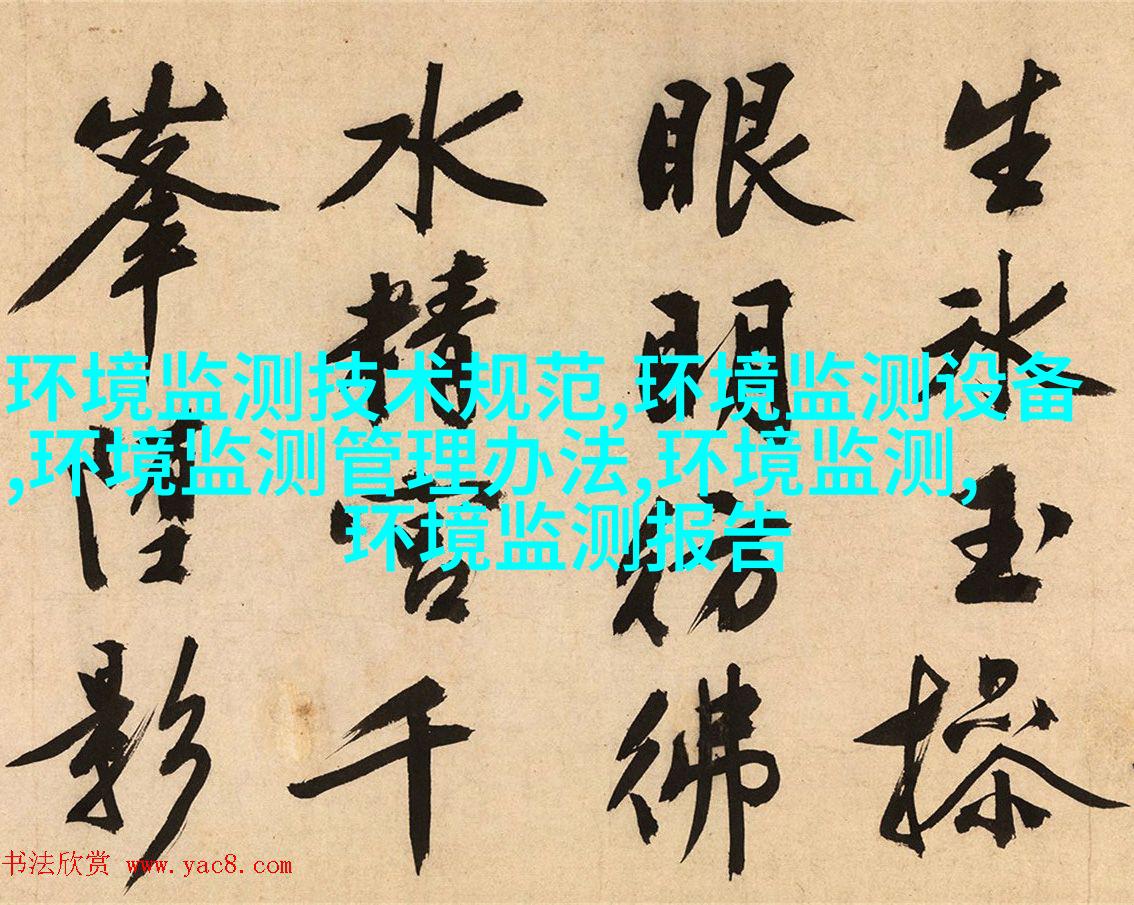 生冰玉操
眼明彷彿
水精宮千
峯墮影
环境监测技术规范,环境监测设备
,环境监测管理办法,环境监测,
环境监测报告
书法欣赏 www.yac8.com